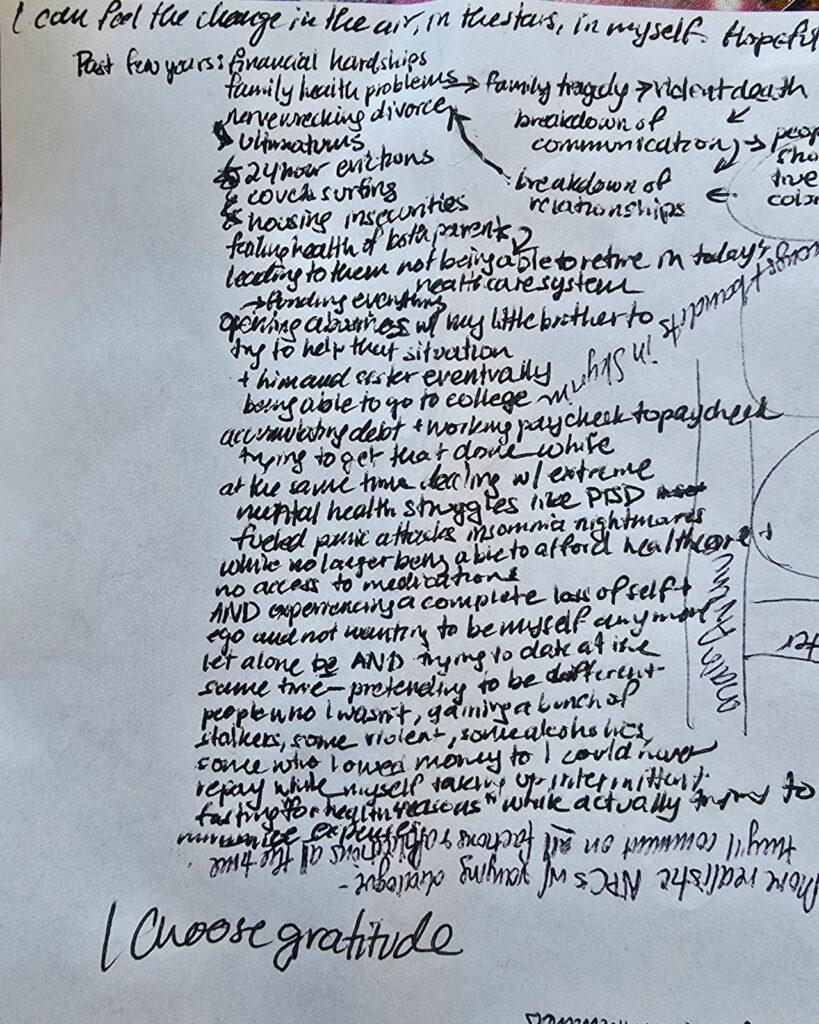 I can feel the change in the air, in the stars, in myself. Hopeful
Past few years: financial hardships
family health problems → family tragedy → violent death
nervewrecking divorce breakdown of
ultimatums communication → peop
24 hour evictions sho
couch surfing breakdown of true
housing insecurities relationships ← color
failing health of both parents
leading to them not being able to retire in today's
healthcare system
→ funding everything
opening a business w/ my little brother to
try to help that situation
+ him and sister eventually
being able to go to college
accumulating debt + working paycheck to paycheck
trying to get that done while
at the same time dealing w/ extreme
mental health struggles like PTSD
fueled panic attacks insomnia nightmares
while no longer being able to afford healthcare +
no access to medications
AND experiencing a complete loss of self +
ego and not wanting to be myself anymore
let alone be AND trying to date at the
same time - pretending to be different
people who I wasn't, gaining a bunch of
stalkers, some violent, some alcoholics,
some who I owed money to I could never
repay while myself taking up intermittent
fasting "for health reasons" while actually trying to
minimize expenses
bandits in Skyrim
More realistic NPCs w/ varying dialogue -
they'll comment on all factions + all the time
I choose gratitude